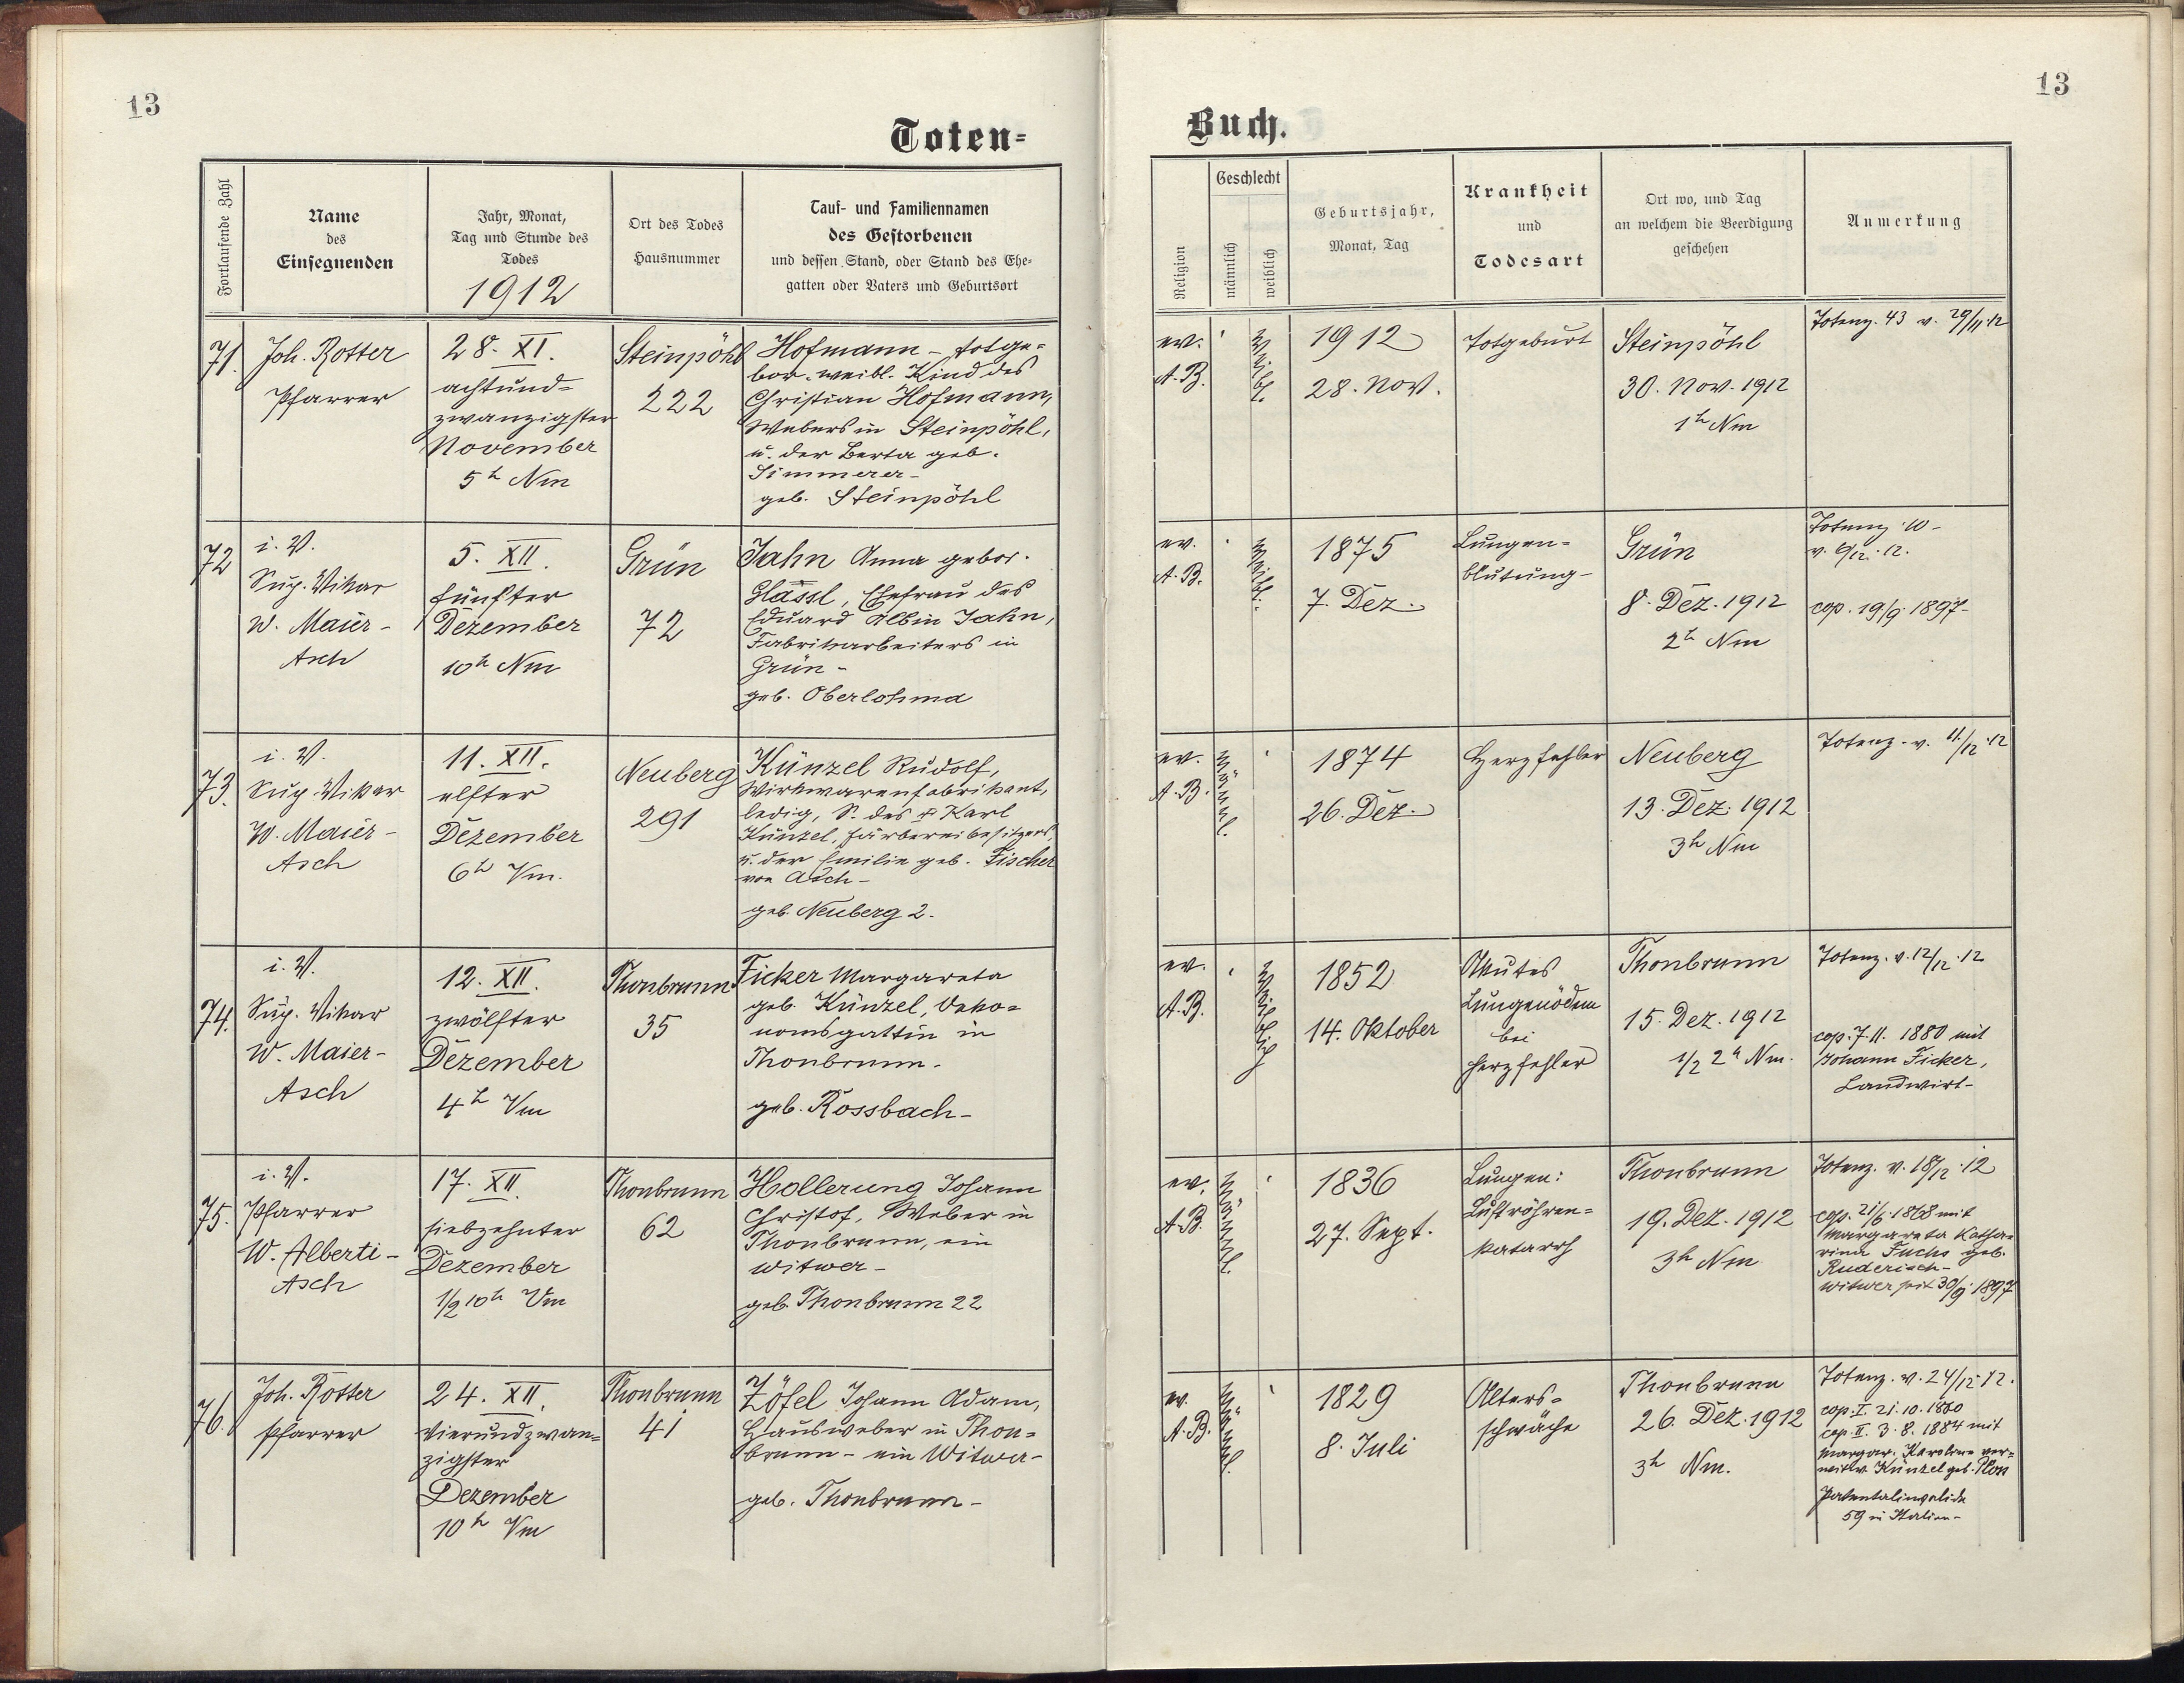 13
Toten-
Fortlaufende Zahl
Name
des
Einsegnenden
Jahr, Monat,
Tag und Stunde des
Todes
1912
Ort des Todes
Hausnummer
Tauf- und Familiennamen
des Gestorbenen
und dessen Stand, oder Stand des Ehe-
gatten oder Vaters und Geburtsort
71.
Joh. Rotter
Pfarrer
28. XI.
achtund-
zwanzigster
November
5h Nm
Steinpöhl
222
Hofmann - totge-
bor. weibl. Kind des
Christian Hofmann,
Webers in Steinpöhl,
u. der Berta geb.
Simmerer-
geb. Steinpöhl
72
i. V.
Sup. Vikar
W. Maier-
Asch
5. XII.
fünfter
Dezember
10h Nm
Grün
72
Jahn Anna gebor.
Glässl, Ehefrau des
Eduard Albin Jahn,
Fabrikarbeiters in
Grün-
geb. Oberlohma
73.
i. V.
Sup. Vikar
W. Maier-
Asch
11. XII.
elfter
Dezember
6h Vm.
Neuberg
291
Künzel Rudolf,
Wirkwarenfabrikant,
ledig, S. des † Karl
Künzel, Färbereibesitzers
u. der Emilie geb. Fischer
von Asch-
geb. Neuberg 2.
74.
i. V.
Sup. Vikar
W. Maier-
Asch
12. XII.
zwölfter
Dezember
4h Vm
Thonbrunn
35
Ficker Margareta
geb. Künzel, Oeko-
nomsgattin in
Thonbrunn.
geb. Rossbach-
75.
i. V.
Pfarrer
W. Alberti-
Asch
17. XII
siebzehnter
Dezember
1/2 10h Vm
Thonbrunn
62
Hollerung Johann
Christof, Weber in
Thonbrunn, ein
Witwer-
geb. Thonbrunn 22
76.
Joh. Rotter
Pfarrer
24. XII.
vierundzwan-
zigster
Dezember
10h Vm
Thonbrunn
41
Zöfel Johann Adam,
Hausweber in Thon-
brunn - ein Witwer-
geb. Thonbrunn-
13
Buch.
Religion
Geschlecht
männlich
weiblich
Geburtsjahr,
Monat, Tag
Krankheit
und
Todesart
Ort wo, und Tag
an welchem die Beerdigung
geschehen
Anmerkung
ev.
A. B.
weibl.
1912
28. Nov.
Totgeburt
Steinpöhl
30. Nov. 1912
1h Nm
Totenz. 43 v. 29/11.12
ev.
A. B.
weibl.
1875
7. Dez.
Lungen-
blutung-
Grün
8. Dez. 1912
2h Nm
v. 6/12.12.
cop. 19/9. 1897-
ev.
A. B.
männl.
1874
26. Dez.
Herzfehler
Neuberg
13. Dez. 1912
3h Nm
Totenz. v. 11/12.12
ev.
A. B.
weiblich
1852
14. Oktober
Akutes
Lungenödem
bei
Herzfehler
Thonbrunn
15. Dez. 1912
1/2 2h Nm.
Totenz. v. 12/12.12
cop. 7. 11. 1880 mit
Johann Ficker,
Landwirt-
ev.
A. B.
männl.
1836
27. Sept.
Lungen:
Luftröhren-
katarrh
Thonbrunn
19. Dez. 1912
3h Nm
Totenz. v. 18/12.12
cop. 21/6. 1868 mit
Margareta Katha-
rina Fuchs geb.
Ruderisch-
Witwer seit 30/9. 1897
ev.
A. B.
männl.
1829
8. Juli
Alters-
schwäche
Thonbrunn
26. Dez. 1912
3h Nm.
Totenz. v. 24/12.12.
cop. I. 21. 10. 1860
cop. II. 3. 8. 1884 mit
Margar. Karoline ver-
witw. Künzel geb. Ploss
Patentalinvalide
59 in Italien-